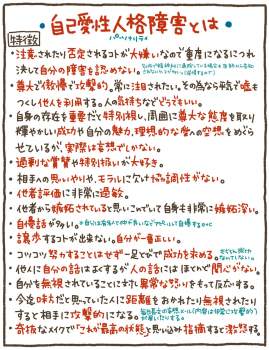 ・自己愛性人格障害とは・
パーソナリティ
特徴
・注意されたり否定されるコトが大嫌いなので重度になるにつれ
決して自分の障害を認めない。
・尊大で傲慢で攻撃的。常に注目されたい。その為なら平気で嘘も
つくし他人を利用する。人の気持ちなどどうでもいい。
・自身の存在を重要だと特別視し、周囲に尊大な態度を取り
輝やかしい成功や自分の魅力、理想的な愛への空想をめぐら
せているが、実際は妄想でしかない。
・過剰な賞賛や特別扱いが大好き。
・相手への思いやりや、モラルに欠け協調性がない。
・他者評価に非常に過敏。
・他者から嫉妬されていると思いこんでいて自身も非常に嫉妬深い。
・自慢話が多い。
・譲歩するコトが出来ない。自分が一番正しい。
・コツコツ努力することはせず一足とびで成功を求める。
・他人に自分の話はよくするが人の話にはほとんど関心がない。
・自分を無視されていることに対し異常な怒りをもって反応する。
・今迄味方だと思っていた人に距離をおかれたり無視されたり
すると相手に攻撃的になる。
・奇抜なメイクで「これが最高の状態」と思い込み指摘すると激怒する。